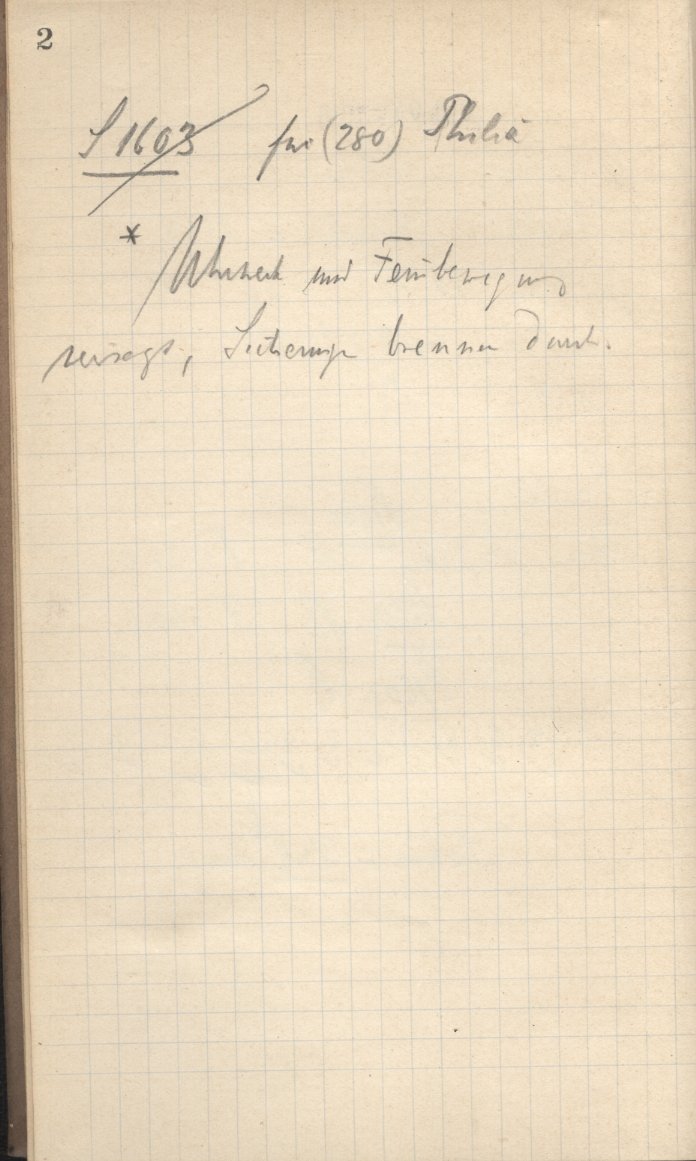 2
S 1603 für (280) Philia
* Uhrwerk und Feinbewegung
versagt, Sicherungen brennen durch.